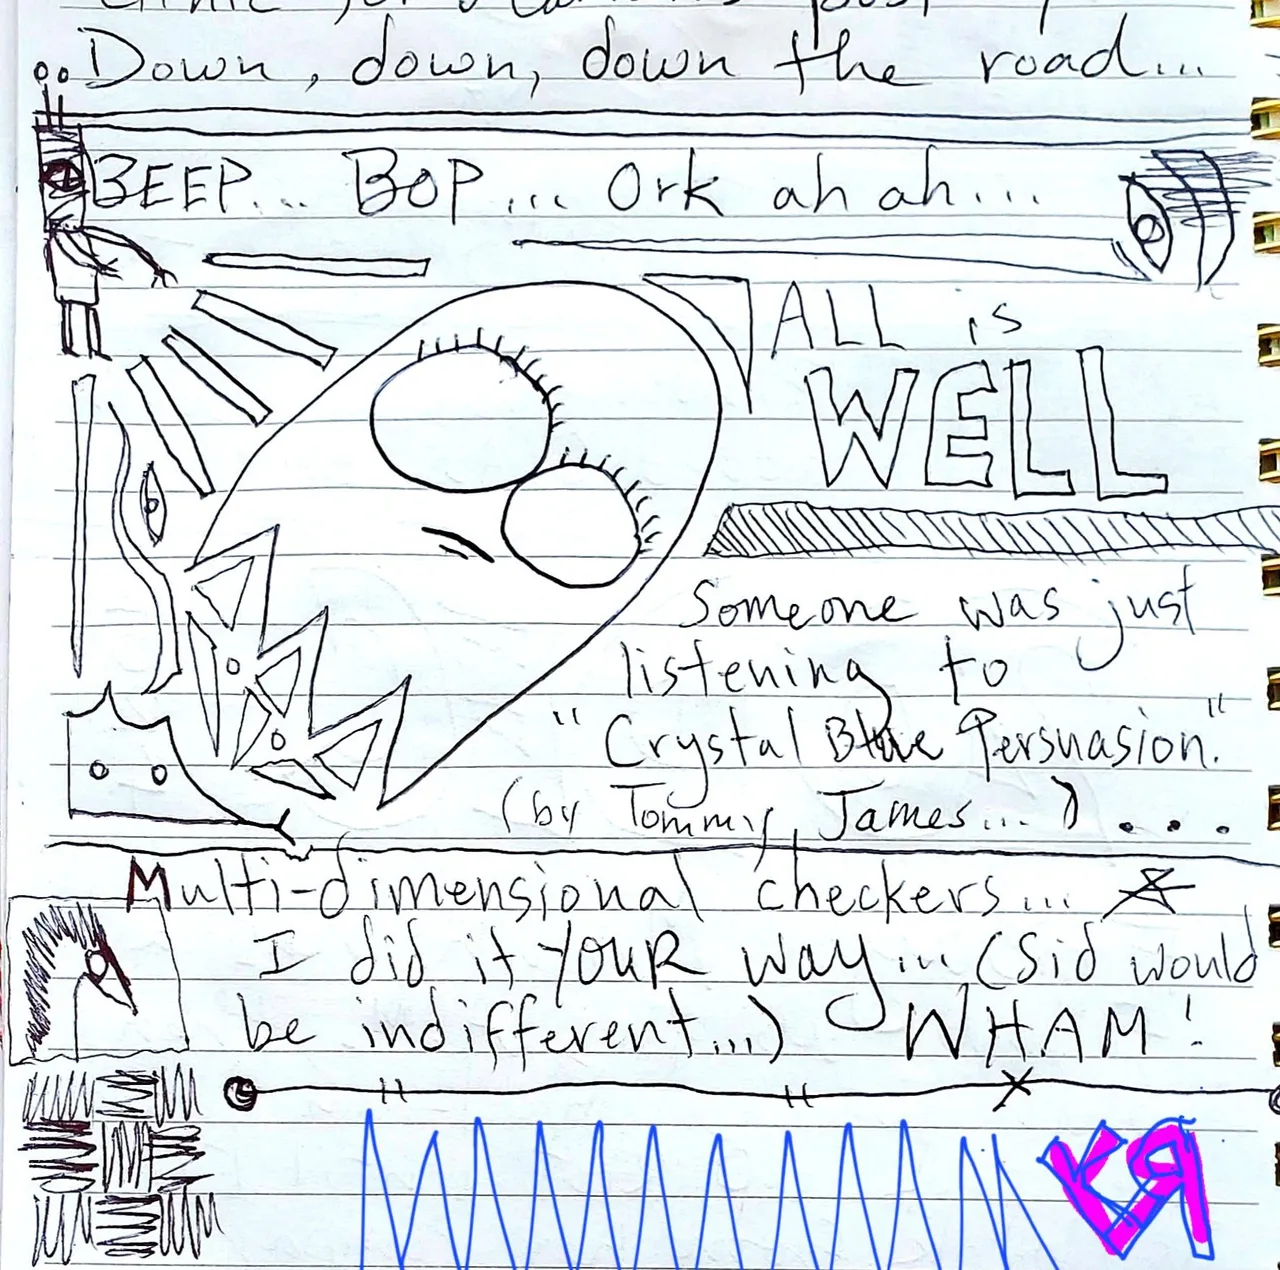 Down, down, down the road...
BEEP... BOP... Ork ah ah...
ALL is
WELL
Someone was just
listening to
"Crystal Blue Persuasion."
(by Tommy, James...) ...
Multi-dimensional checkers...
I did it YOUR way... (Sid would
be indifferent...) WHAM!
KЯ